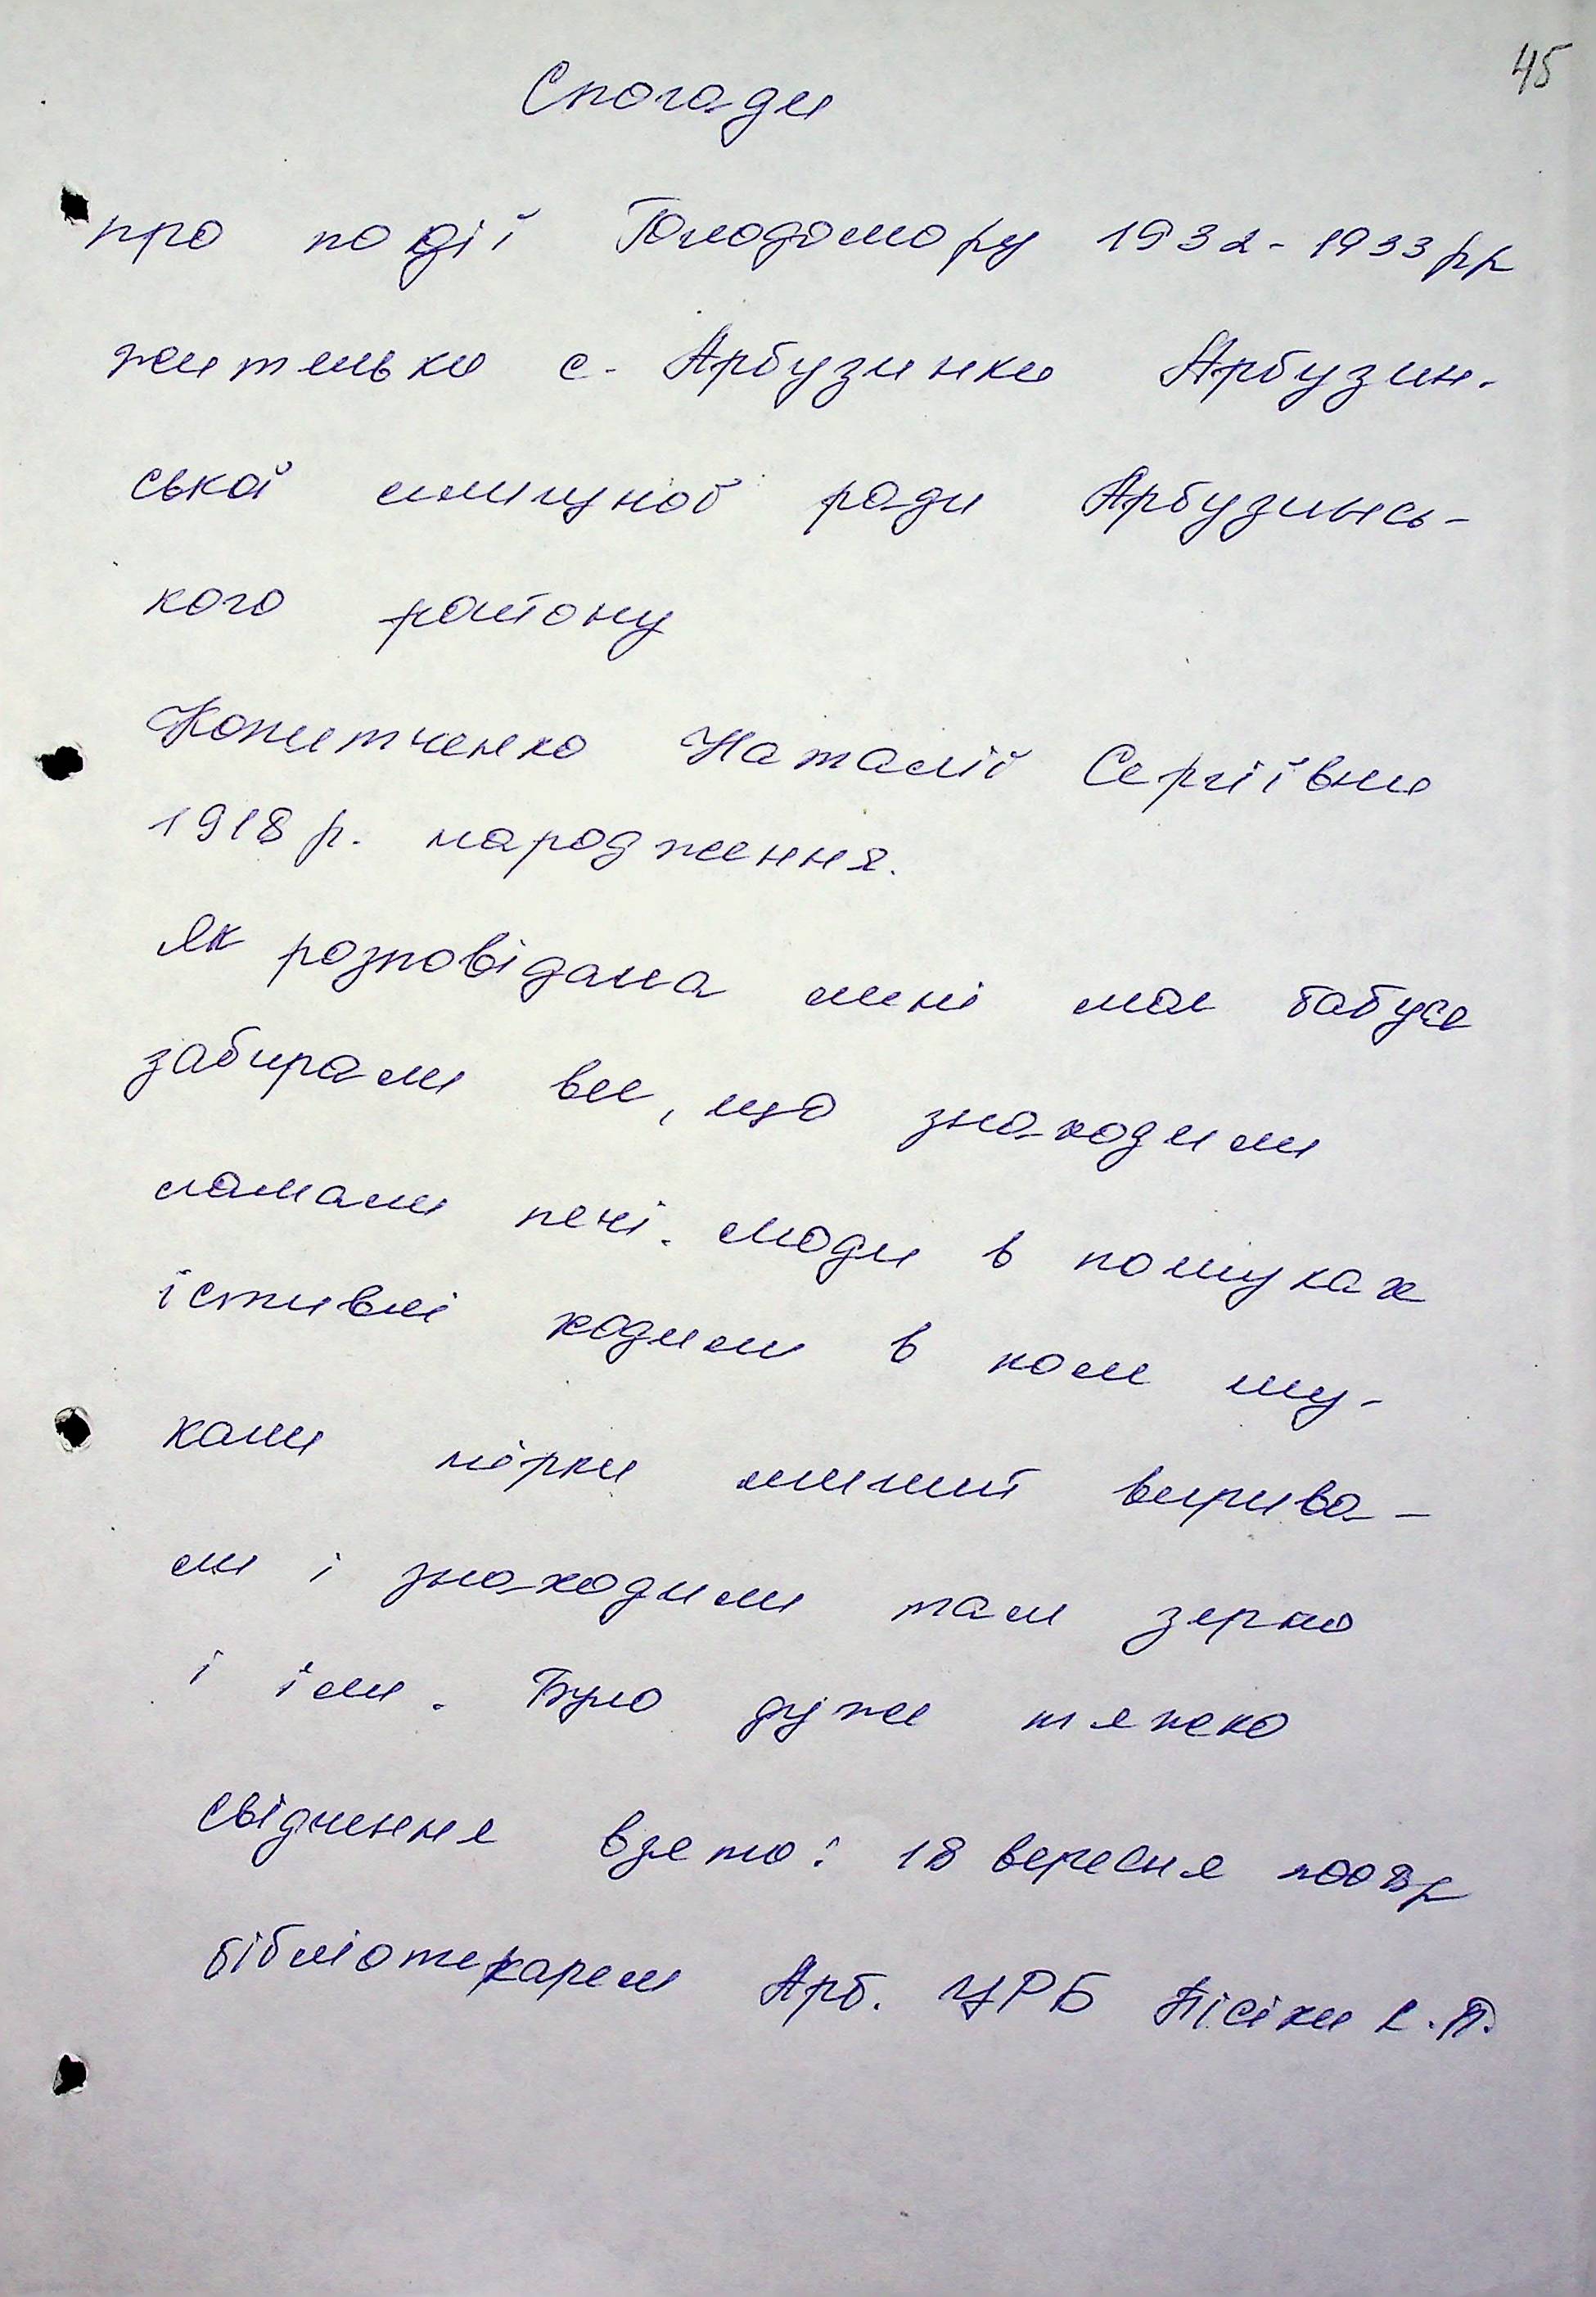 45
Спогади
про події Голодомору 1932-1933 рр
жительки с. Арбузинки Арбузин-
ської селищної ради Арбузинсь-
кого району
Копитченко Наталії Сергіївни
1918 р. народження.
Як розповідала мені моя бабуся
забирали все, що знаходили
ламали печі. Люди в пошуках
їстивні ходили в поле шу-
кали нірки мишей вирива-
ли і знаходили там зерно
і їли. Було дуже тяжко
Свідчення взято: 18 вересня 2008 р
бібліотекарем Арб. ЦРБ С.П.